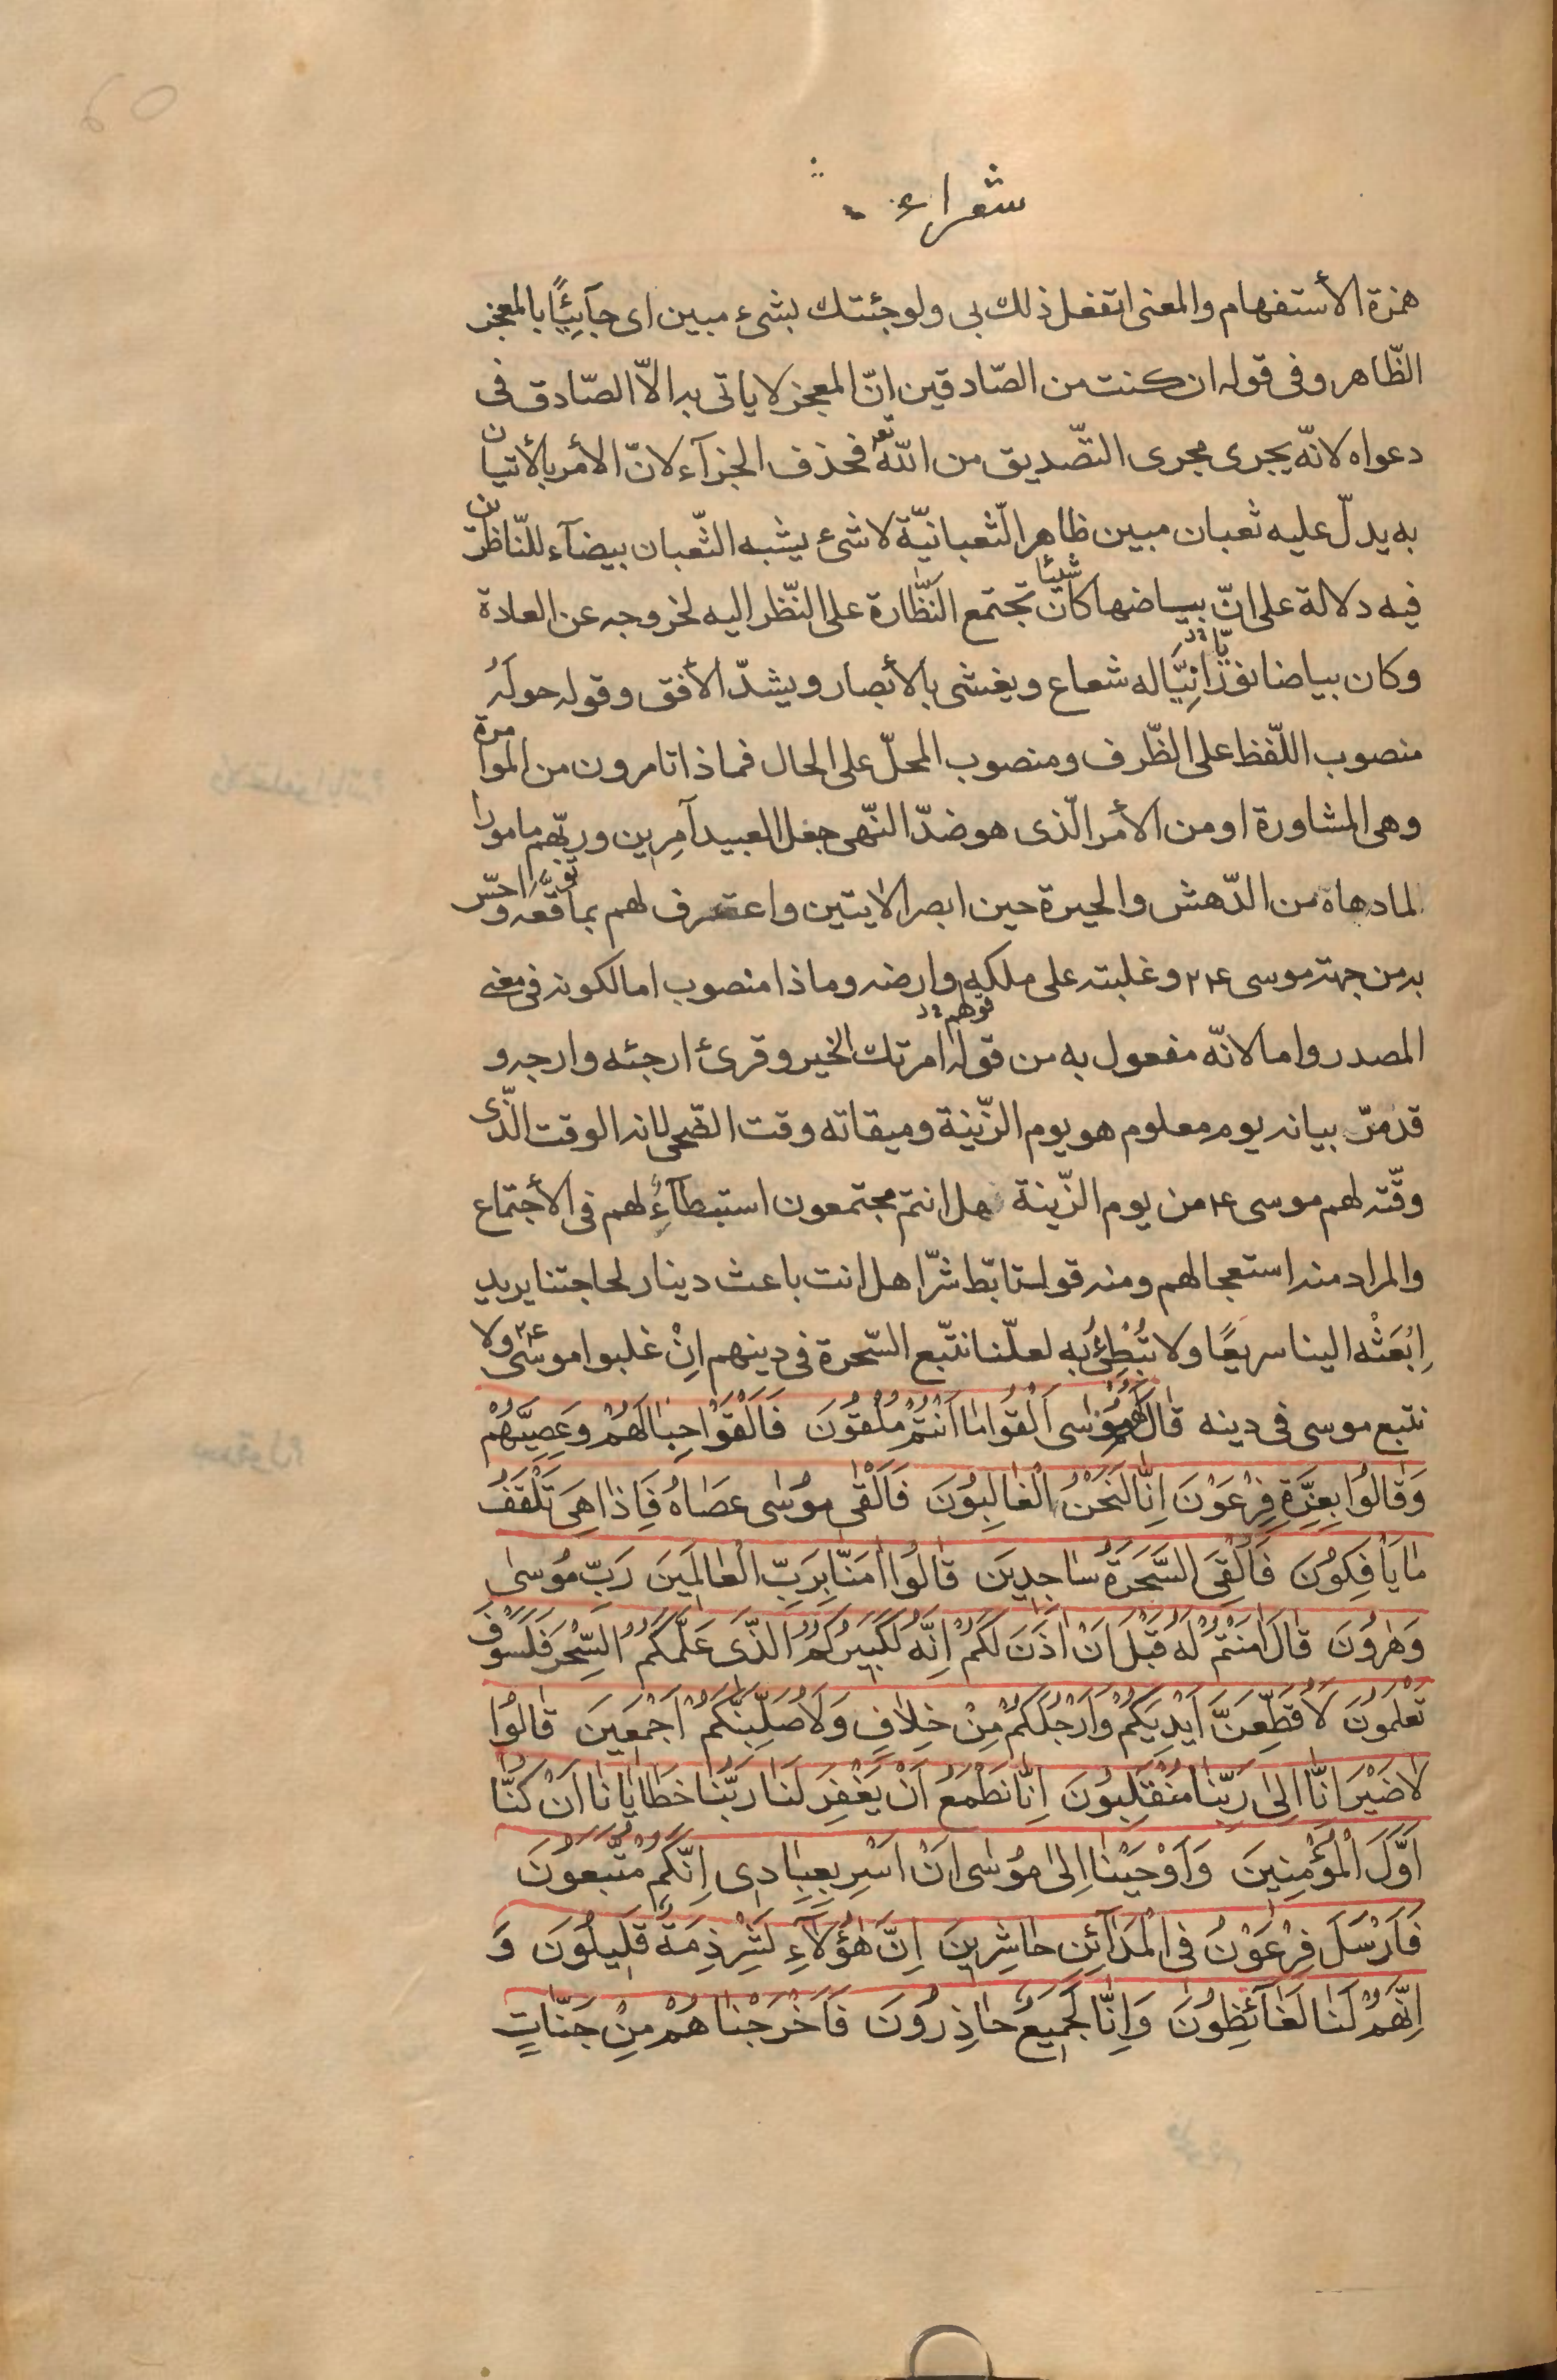 شعراء
همزة الأستفهام والمعنى اتفعل ذلك بى ولوجئتك بشىء مبين اى جآئيًا بالمعجز
الظّاهر وفى قوله ان كنت من الصّادقين انّ المعجز لا ياتى به الّا الصّادق فى
دعواه لانّه يجرى مجرى التّصديق من اللّه تع فحذف الجزآء لانّ الأمر بالأتيان
به يدلّ عليه ثعبان مبين ظاهر الثّعبانيّة لا شىء يشبه الثّعبان بيضآء للنّاظرين
فيه دلالة على انّ بياضها كان شيئا تجتمع النّظّارة على النّظر اليه لخروجه عن العادة
وكان بياضا نورانِيًّا له شعاع ويغشى بالأبصار ويشدّ الأفق وقوله حولَهُ
منصوب اللّفظ على الظّرف ومنصوب المحلّ على الحال فماذا تامرون من الموامرة
وهى المشاورة او من الأمر الّذى هو ضدّ النّهى جعل العبيد آمِرِين وربّهم مامورا
لما دهاه من الدّهش والحيرة حين ابصر الايتين واعترف لهم بما توقّعه واحسّ
به من جهة موسى ع وغلبته على ملكه وارضه وماذا منصوب امالكونه فى معنى
المصدر وامالانّه مفعول به من قولهم امرتك الخير وقرئ ارجئه وارجه و
قدمرّ بيانه يوم معلوم هو يوم الزّينة وميقاته وقت الضّحى لانه الوقت الّذى
وقّته لهم موسى ع من يوم الزّينة هل انتم مجتمعون استبطآء لهم فى الأجتماع
والمراد منه استعجالهم ومنه قول تابّط شرّا هل انت باعث دينار لحاجتنا يريد
اِبْعَثْه الينا سريعًا ولا تُبْطِئُ به لعلّنا نتّبع السّحرة فى دينهم اِنْ غلبوا موسى ع ولا
نتبع موسى فى دينه قٰالَ لَهُمْ مُوسٰى اَلْقُوا مٰا اَنْتُمْ مُلْقُونَ فَاَلْقَوْا حِبٰالَهُمْ وَعِصِيَّهُمْ
وَقٰالُوا بِعِزَّةِ فِرْعَوْنَ اِنّٰا لَنَحْنُ الْغٰالِبُونَ فَاَلْقٰى مُوسٰى عَصٰاهُ فَاِذٰا هِىَ تَلْقَفُ
مٰا يَاْفِكُونَ فَاُلْقِىَ السَّحَرَةُ سٰاجِدِينَ قٰالُوا اٰمَنّٰا بِرَبِّ الْعٰالَمِينَ رَبِّ مُوسٰى
وَهٰرُونَ قٰالَ اٰمَنْتُمْ لَهُ قَبْلَ اَنْ اٰذَنَ لَكُمْ اِنَّهُ لَكَبِيرُكُمُ الَّذى عَلَّمَكُمُ السِّحْرَ فَلَسَوْفَ
تَعْلَمُونَ لَاُقَطِّعَنَّ اَيْدِيَكُمْ وَاَرْجُلَكُمْ مِنْ خِلٰافٍ وَلَاُصَلِّبَنَّكُمْ اَجْمَعِينَ قٰالُوا
لٰا ضَيْرَ اِنّٰا اِلىٰ رَبِّنٰا مُنْقَلِبُونَ اِنّٰا نَطْمَعُ اَنْ يَغْفِرَ لَنٰا رَبُّنٰا خَطٰايٰانٰا اَنْ كُنّٰا
اَوَّلَ الْمُؤْمِنِينَ وَاَوْحَيْنٰا اِلىٰ مُوسٰى اَنْ اَسْرِ بِعِبٰادِى اِنَّكُمْ مُتَّبَعُونَ
فَاَرْسَلَ فِرْعَوْنُ فِى الْمَدٰآئِنِ حٰاشِرِينَ اِنَّ هٰؤُلٰآءِ لَشِرْذِمَةٌ قَلِيلُونَ وَ
اِنَّهُمْ لَنٰا لَغٰآئِظُونَ وَاِنّٰا لَجَمِيعٌ حٰاذِرُونَ فَاَخْرَجْنٰاهُمْ مِنْ جَنّٰاتٍ